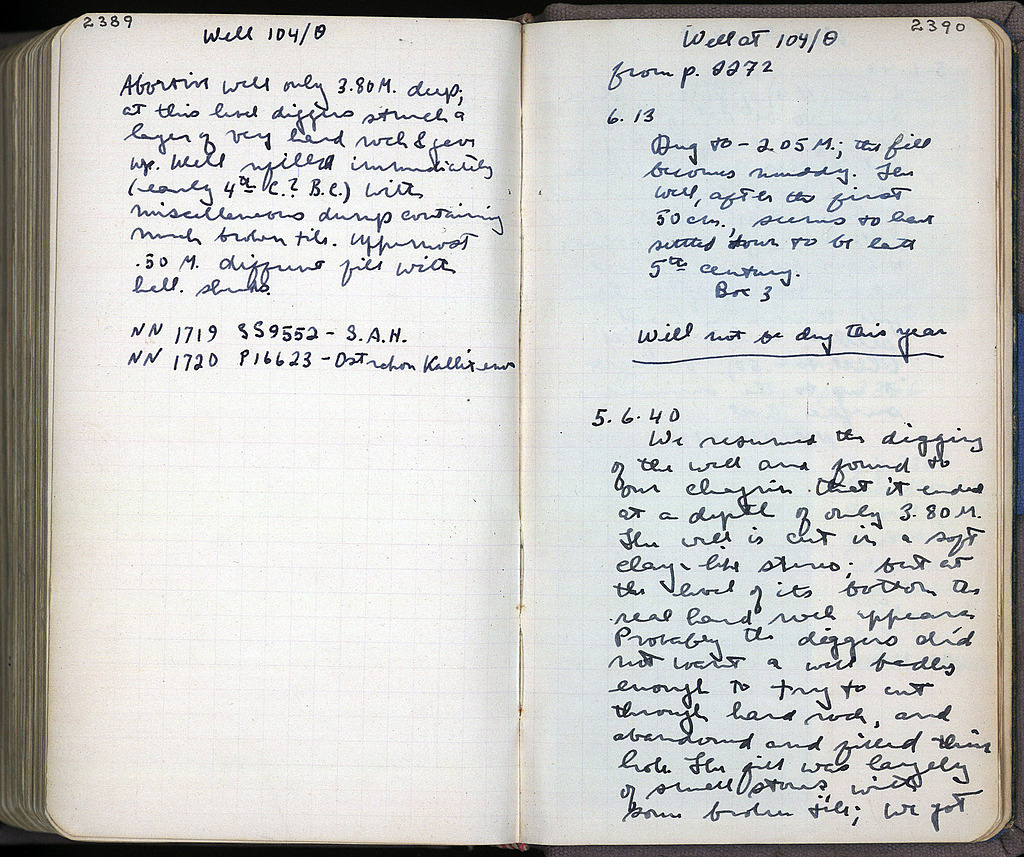 2389
Well 104/Θ
Abortive well only 3.80 M. deep;
at this level diggers struck a
layer of very hard rock & gave
up. Well refilled immediately
(early 4th C.? B.C.) with
miscellaneous dump containing
much broken tile. Uppermost
.50 M. different fill with
hell. sherds.
NN 1719 SS9552 - S.A.H.
NN 1720 P16623 - Ostrakon Kallixenos
2390
Well at 104/Θ
from p. 2272
6.13
Dug to - 2.05 M.; the fill
becomes muddy. The
well, after the first
50 cm., seems to have
settled down to be late
5th century.
Box 3
Will not be dug this year
5.6.40
We resumed the digging
of the well and found to
our chagrin that it ended
at a depth of only 3.80 M.
The well is cut in a soft
clay-like stereo; but at
the level of its bottom the
real hard rock appears
Probably the diggers did
not want a well badly
enough to try to cut
through hard rock, and
abandoned and filled their
hole. The fill was largely
of small stones, with
some broken tile; we got